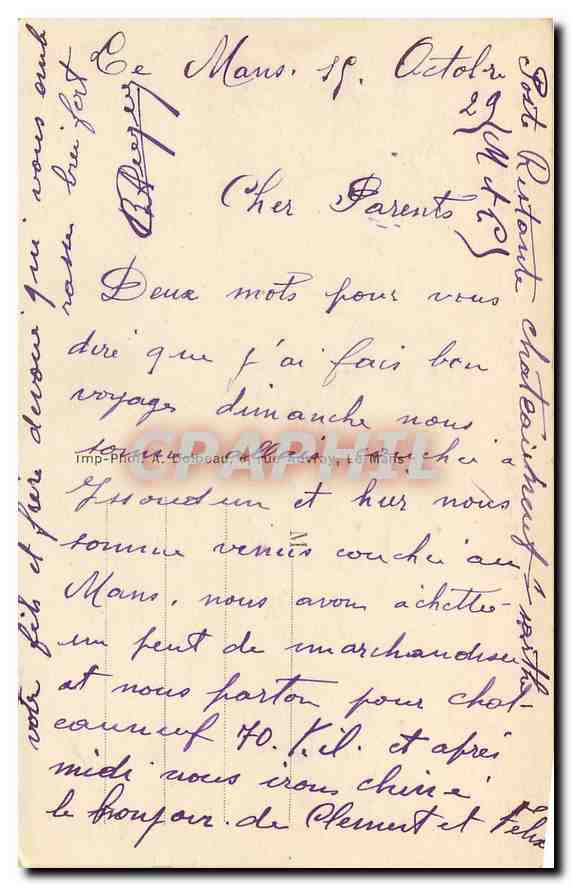 Le Mans. 15. Octobre
29
Cher Parents
Deux mots pour vous
dire que j'ai fais bon
voyages dimanche nous
somme allais couché a
Issoudun et hier nous
somme venus couché au
Mans. nous avon achetter
un peut de marchandise
et nous parton pour chat-
eauneuf 70. Kil. et après
midi nous irons chine
le bonjour. de Clement et Felix
votre fils et frère devoué qui vous emb
rasse bien fort
Poste Restante chateauneuf s/ sarthe
Imp-Phot. A. Dolbeau, rue Auvray, Le Mans
CARTAPHIL
M